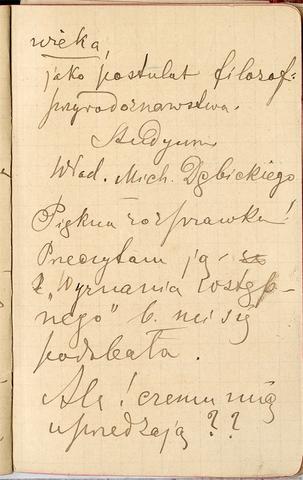 wieka,
jako postulat filozof.
przyrodoznawstwa.
Studyum
Wład. Mich. Dębickiego
Piękna rozprawka!
Przeczytam ją
z „Wyznania
nego" b. mi się
podobała.
Ale! czemu mię
uprzedzają??